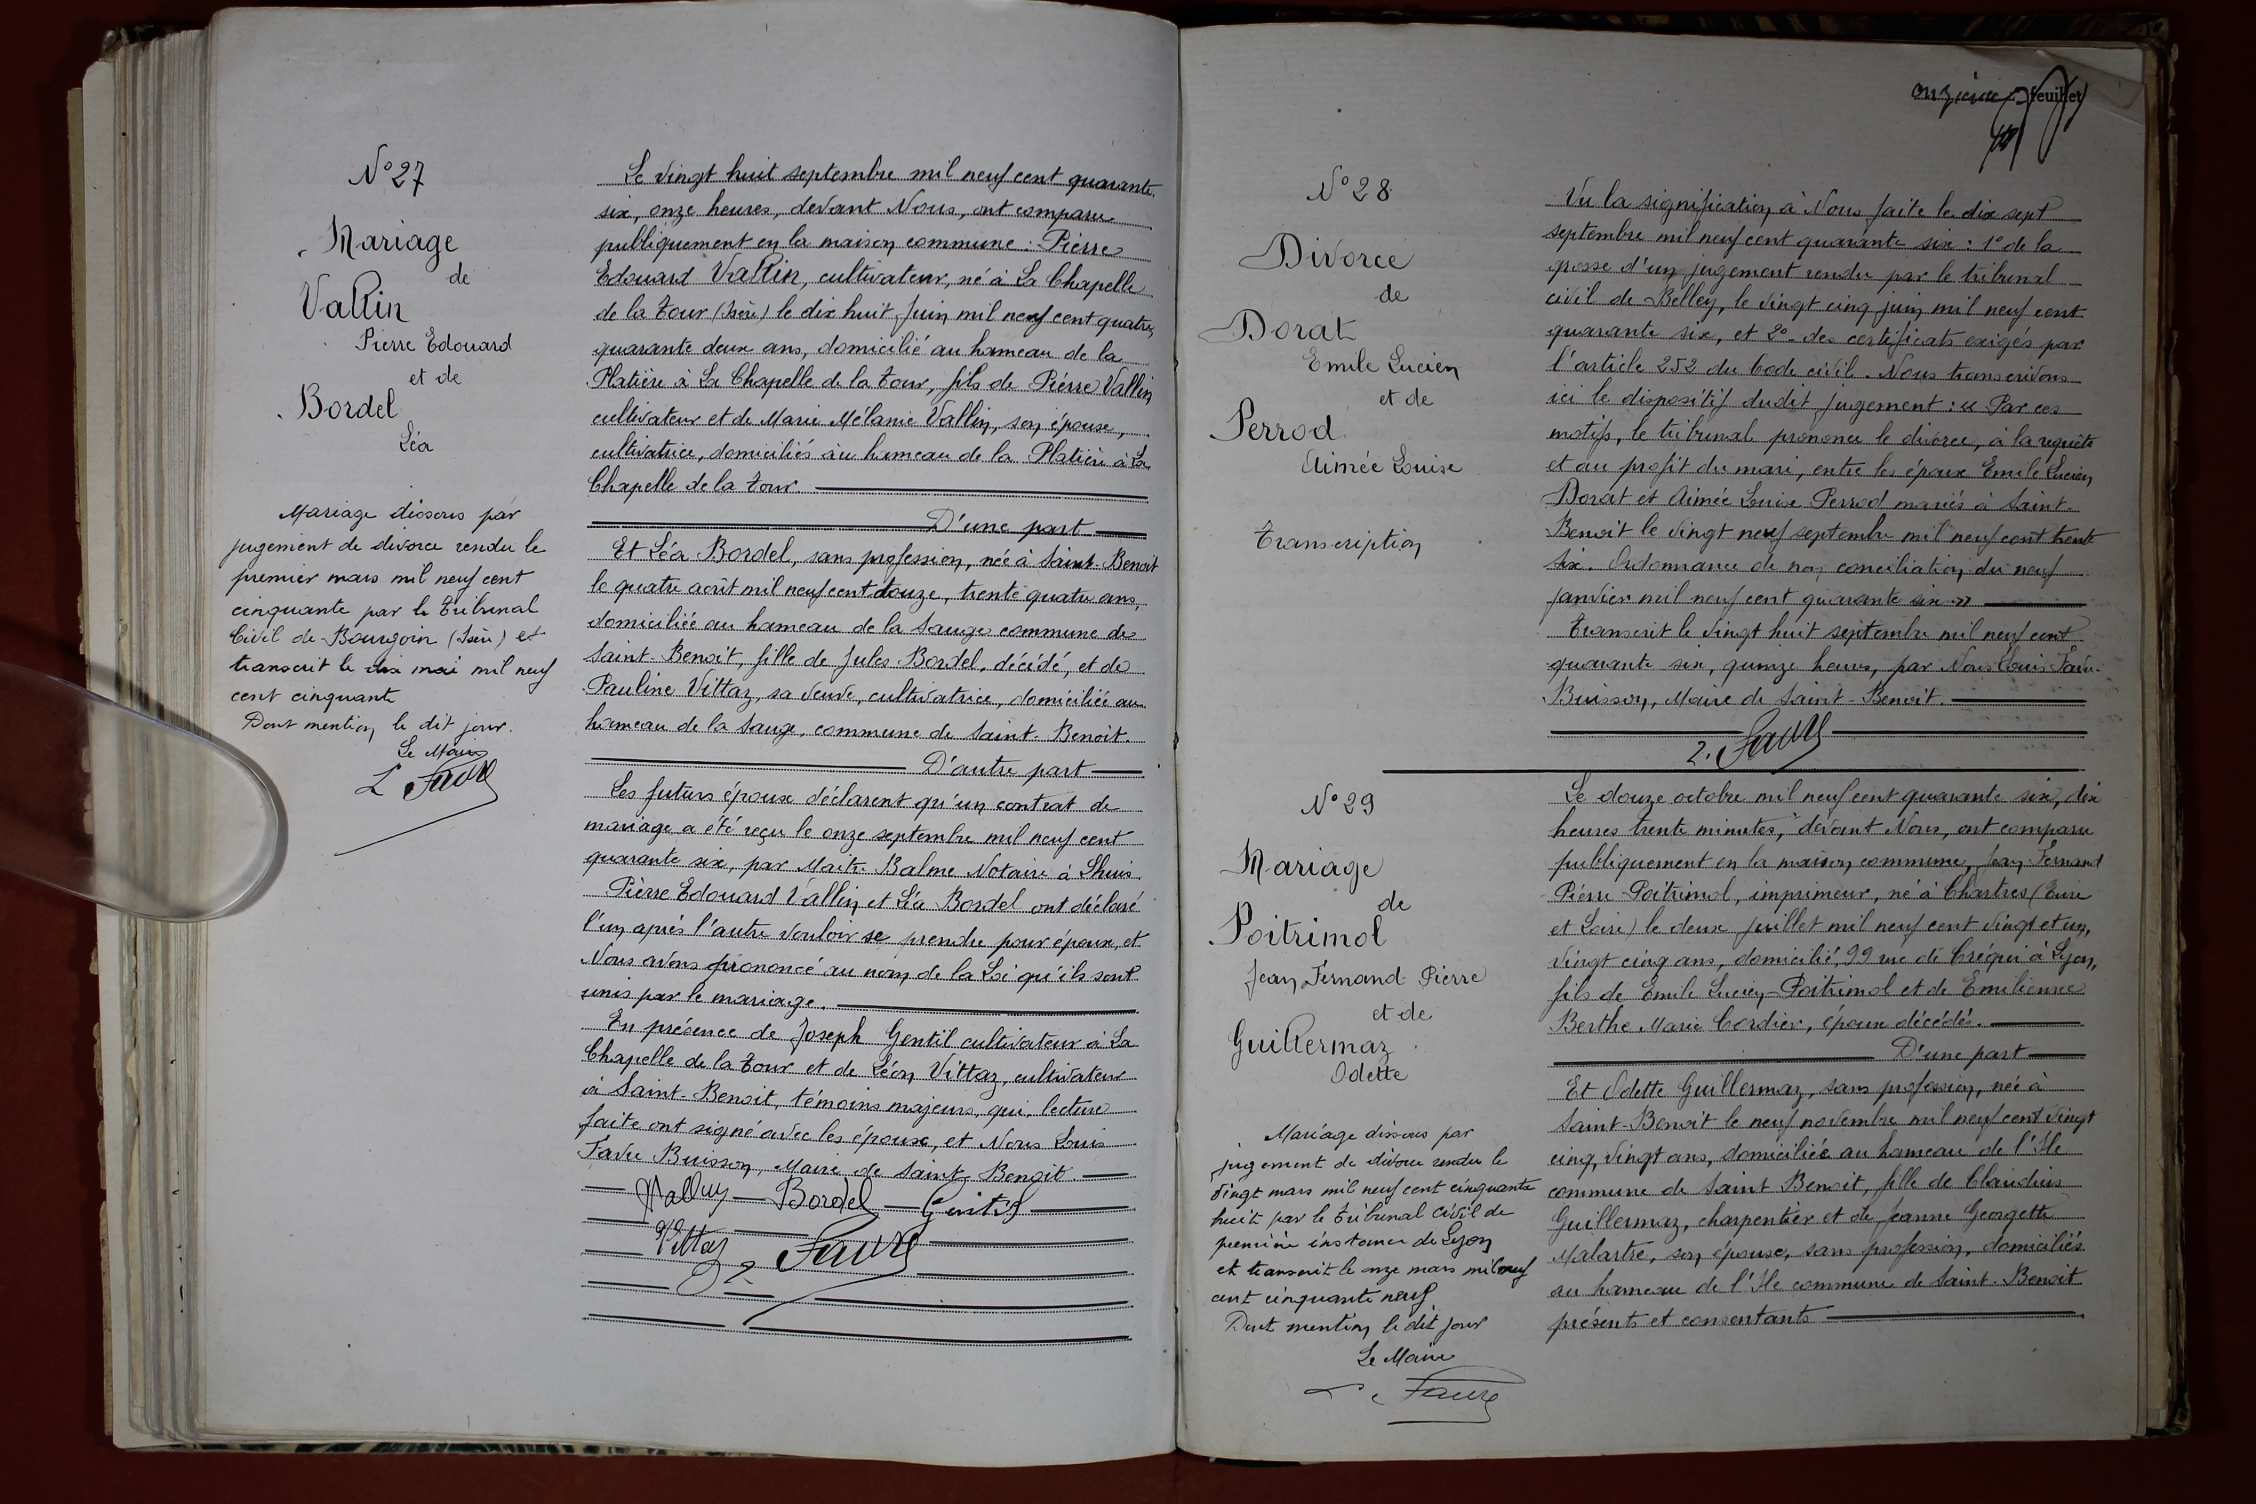 N° 27
Mariage
de
Vallin
Pierre Edouard
et de
Bordel
Léa
Mariage dissous par
jugement de divorce rendu le
premier mars mil neuf cent
cinquante par le Tribunal
Civil de Bourgoin (Isère) et
transcrit le dix mai mil neuf
cent cinquante
Dont mention le dit jour.
Le Maire
L Favre
Le vingt huit septembre mil neuf cent quarante
six, onze heures, devant Nous, ont comparu
publiquement en la maison commune : Pierre
Edouard Vallin, cultivateur, né à La Chapelle
de la Tour (Isère) le dix huit Juin mil neuf cent quatre,
quarante deux ans, domicilié au hameau de la
Platière à La Chapelle de la Tour, fils de Pierre Vallin
cultivateur et de Marie Mélanie Vallin, son épouse,
cultivatrice, domiciliés au hameau de la Platière à La
Chapelle de la Tour
D'une part
Et Léa Bordel, sans profession, née à Saint-Benoit
le quatre août mil neuf cent douze, trente quatre ans,
domiciliée au hameau de la Sauge commune de
Saint-Benoit, fille de Jules Bordel, décédé, et de
Pauline Vittaz, sa veuve, cultivatrice, domiciliée au
hameau de la Sauge, commune de Saint-Benoit.
D'autre part
Les futurs époux déclarent qu'un contrat de
mariage a été reçu le onze septembre mil neuf cent
quarante six, par Maitre Balme Notaire à Lhuis.
Pierre Edouard Vallin et Léa Bordel ont déclaré
l'un après l'autre vouloir se prendre pour époux, et
Nous avons prononcé au nom de la Loi qu'ils sont
unis par le mariage.
En présence de Joseph Gentil cultivateur à La
Chapelle de la Tour et de Léon Vittaz, cultivateur
à Saint-Benoit, témoins majeurs, qui, lecture
faite ont signé avec les époux, et Nous Louis
Favre Buisson, Maire de Saint-Benoit.
Vallin Bordel Gentil
Vittaz Favre
onzième feuillet
N° 28
Divorce
de
Dorat
Emile Lucien
et de
Perrod
Aimée Louise
Transcription
Vu la signification à Nous faite le dix sept
septembre mil neuf cent quarante six : 1° de la
grosse d'un jugement rendu par le tribunal
civil de Belley, le vingt cinq juin mil neuf cent
quarante six, et 2° des certificats exigés par
l'article 252 du Code civil. Nous transcrivons
ici le dispositif dudit jugement : « Par ces
motifs, le tribunal prononce le divorce, à la requête
et au profit du mari, entre les époux Emile Lucien
Dorat et Aimée Louise Perrod mariés à Saint-
Benoit le vingt neuf septembre mil neuf cent trente
six. Ordonnance de non conciliation du neuf
janvier mil neuf cent quarante six »
Transcrit le vingt huit septembre mil neuf cent
quarante six, quinze heures, par Nous Louis Favre-
Buisson, Maire de Saint-Benoit.
L. Favre
N° 29
Mariage
de
Poitrimol
Jean Fernand Pierre
et de
Guillermaz
Odette
Mariage dissous par
jugement de divorce rendu le
vingt mars mil neuf cent cinquante
huit par le Tribunal civil de
première instance de Lyon
et transcrit le onze mars mil neuf
cent cinquante neuf
Dont mention le dit jour
Le Maire
L. Favre
Le douze octobre mil neuf cent quarante six, dix
heures trente minutes, devant Nous, ont comparu
publiquement en la maison commune, Jean Fernand
Pierre Poitrimol, imprimeur, né à Chartres (Eure
et Loire) le deux juillet mil neuf cent vingt et un,
vingt cinq ans, domicilié 99 rue de Créqui à Lyon,
fils de Emile Lucien Poitrimol et de Emilienne
Berthe Marie Cordier, époux décédés.
D'une part
Et Odette Guillermaz, sans profession, née à
Saint-Benoit le neuf novembre mil neuf cent vingt
cinq, vingt ans, domiciliée au hameau de l'Ile
commune de Saint Benoit, fille de Claudius
Guillermaz, charpentier et de Jeanne Georgette
Malartre, son épouse, sans profession, domiciliés
au hameau de l'Ile commune de Saint-Benoit
présents et consentants